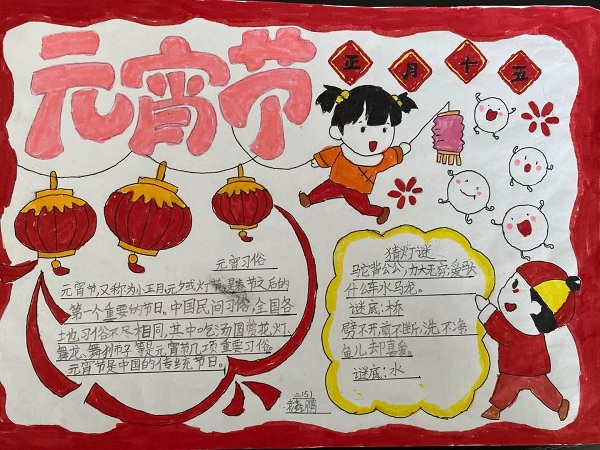 元宵节
正月十五
元宵习俗
元宵节,又称为小正月元夕或灯节,是春节之后的
第一个重要的节日。中国民间习俗,全国各
土也习俗不尽相同,其中吃汤圆赏花灯、
舞龙、舞狮子等是元宵节几项重要习俗。
元宵节是中国的传统节日。
猜灯谜
驼背公公,力大无穷,爱驮
什么车水马龙。
谜底:桥
劈不开,前不断,洗不净
鱼儿却喜爱。
谜底:水
二(5)